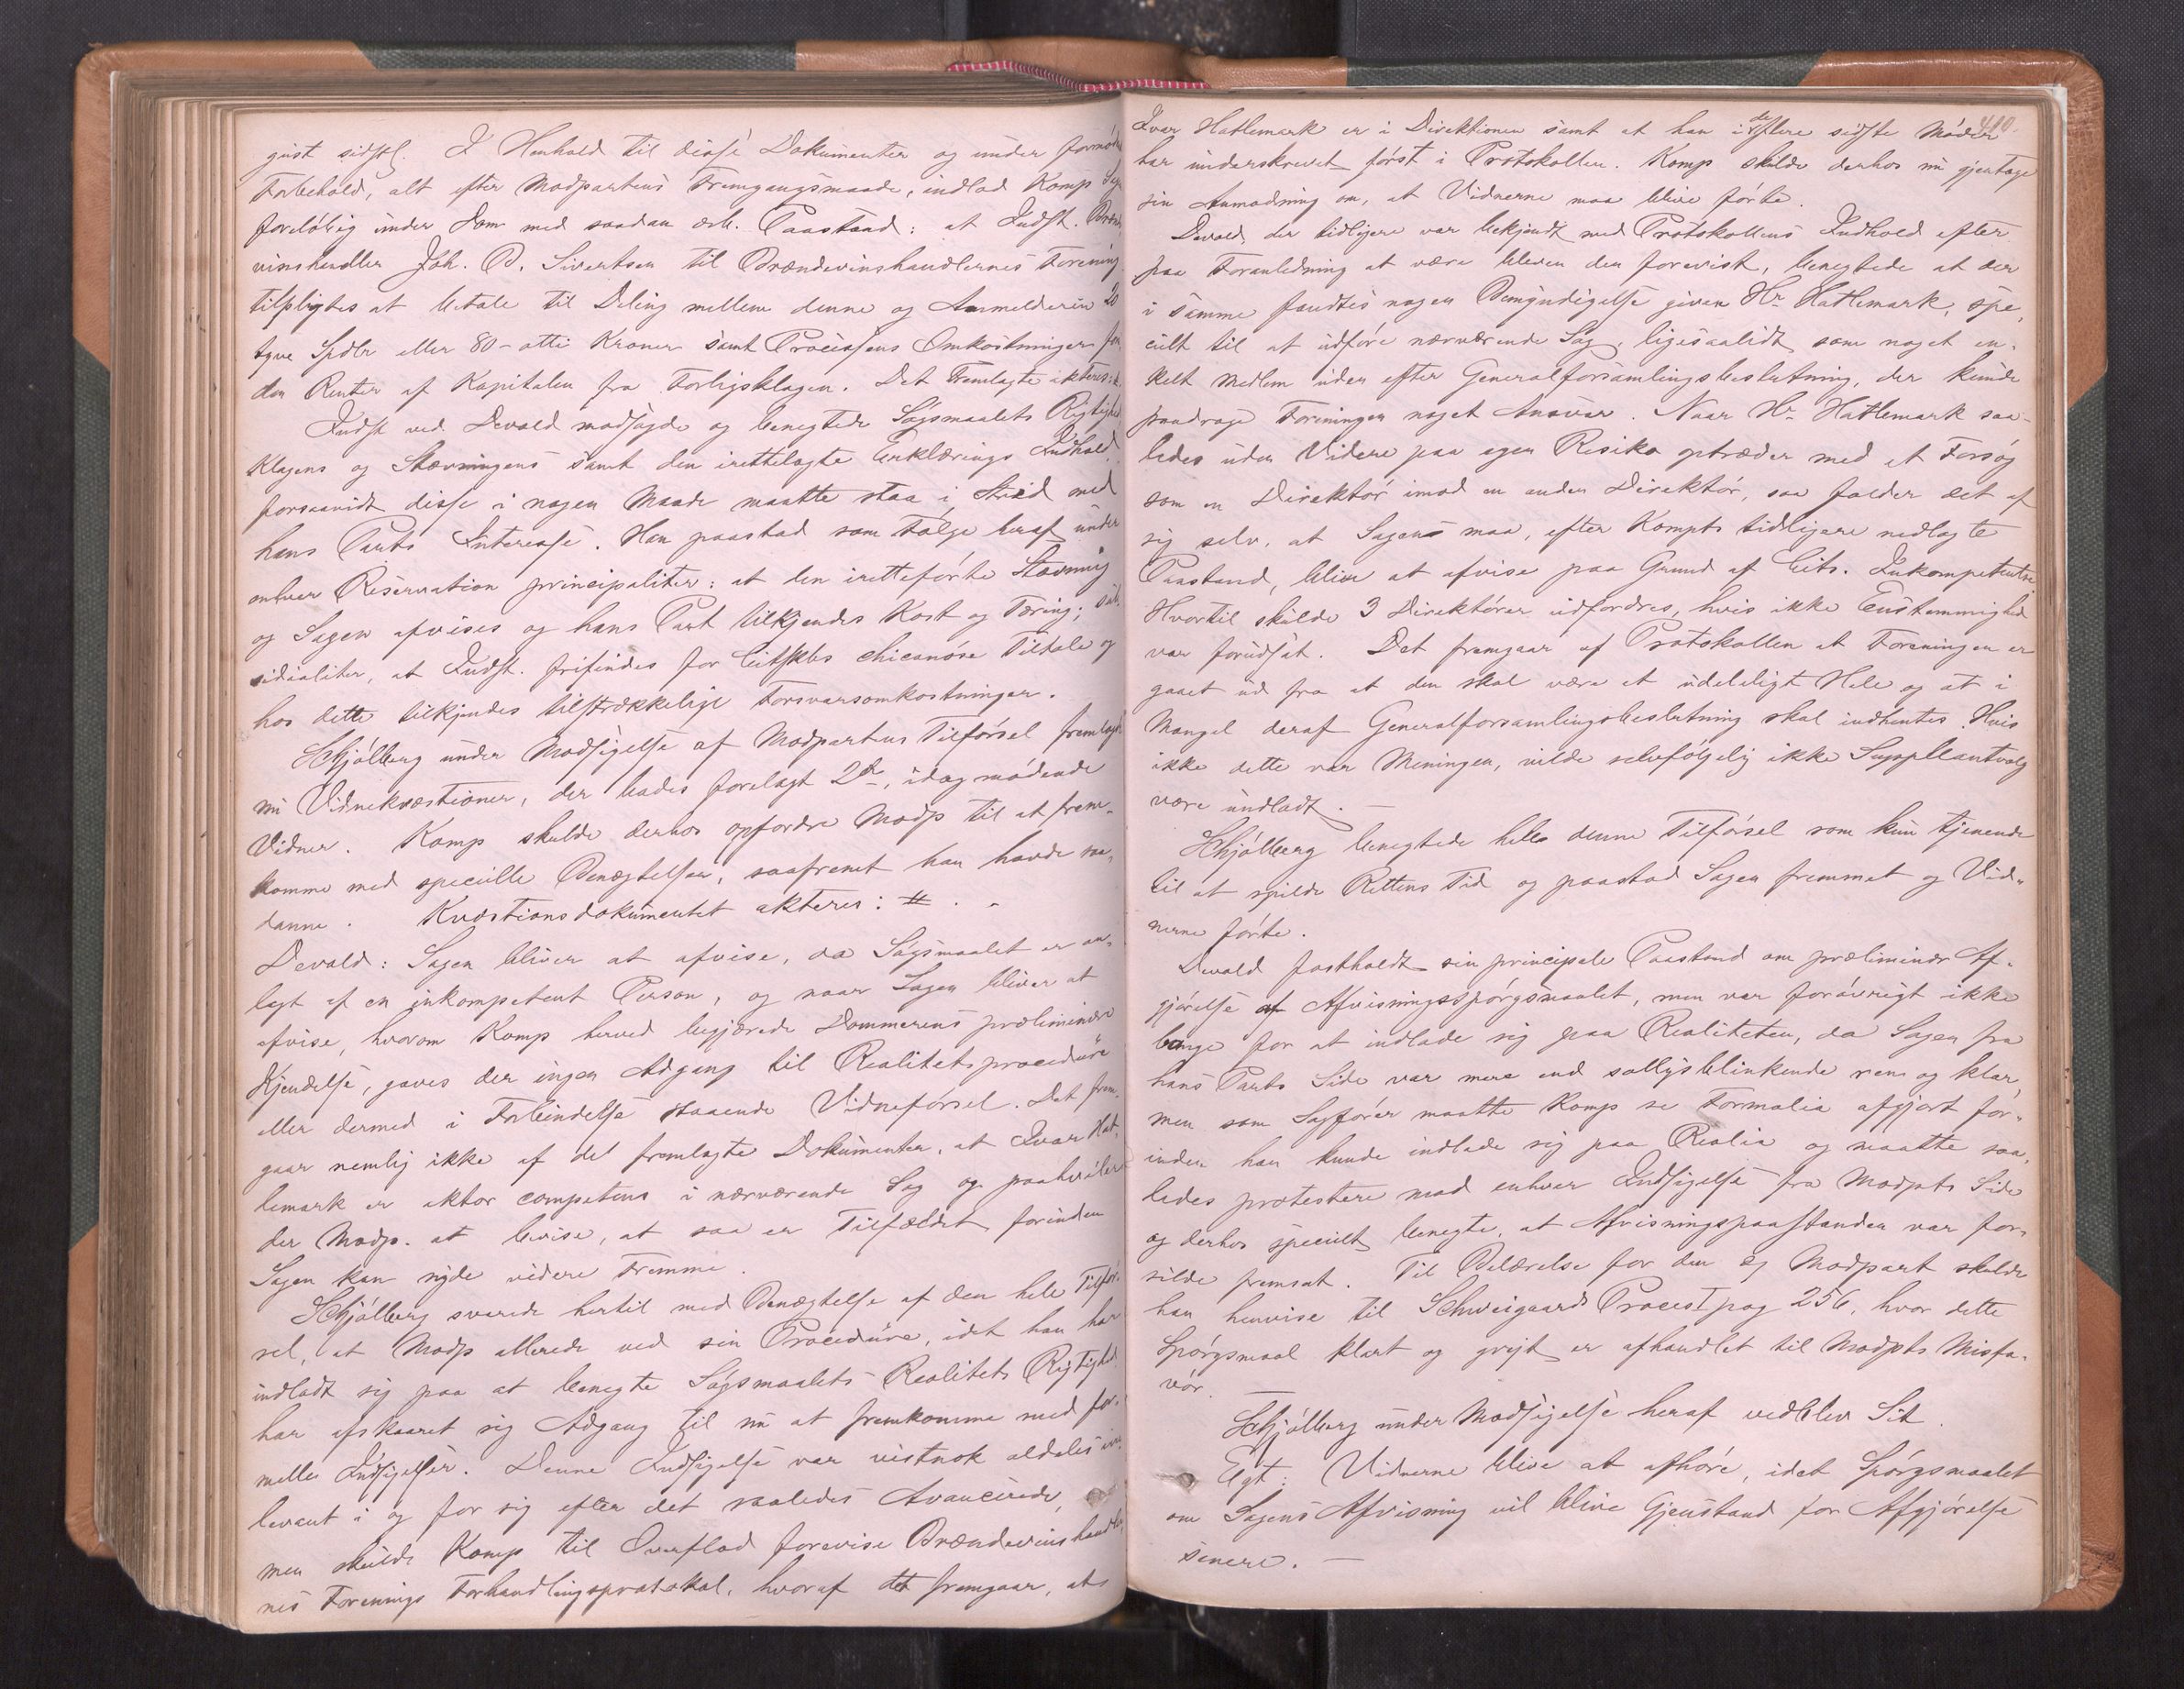 gust sidstl. I Henhold til disse Dokumenter og under fornødt
Forbehold, alt efter Modpartens Fremgangsmaade, indlod Komp Sagen
foreløbig under Dom med saadan ærb. Paastand: at Indst. Brænde
vinshandler Joh. P. Sivertsen til Brændevinshandlernes Forening
tilpligtes at betale til Deling mellem denne og Anmelderen 20
tyve Spdlr eller 80-otti Kroner samt Processens Omkostninger for
den Renter af Kapitalen fra Forligsklagen. Det Fremlagte akteres:
Indst ved Devold modsagde og benegtede Søgsmaalets Rigtighed
Klagens og Stævningens samt den irettelagte Erklærings Indhold
forsaavidt disse i nogen Maade maatte staa i Strid med
hans Parts Interesse. Han paastod som Følge heraf under
enhver Reservation principaliter: at den iretteførte Stævning
og Sagen afvises og hans Part tilkjendes Kost og Tæring; sub
sidialiter, at Indst. frifindes for Citstkts chicanøse Tiltale og
hos dette tilkjendes tilstrækkelige Forsvarsomkostninger.
Schjølberg under Modsigelse af Modpartens Tilførsel fremlagde
nu Vidnekvæstioner, der bades forelagt 2de, idag mødende
Vidner. Komp skulde derhos opfordre Modp til at frem-
komme med specielle Benægtelser, saafremt han havde saa-
danne. Kvæstionsdokumentet akteres: #.
Devold: Sagen bliver at afvise, da Søgsmaalet er an-
lagt af en inkompetent Person, og naar Sagen bliver at
afvise, hvorom Komp herved begjærede Dommerens præliminære
Kjendelse, gaves der ingen Adgang til Realitetsprocedure
eller dermed i Forbindelse staaende Vidneførsel. Det frem-
gaar nemlig ikke af det fremlagte Dokumenter, at Ivar Hat-
lemark er aktor competens i nærværende Sag og paahviler
der Modp. at bevise, at saa er Tilfældet forinden
Sagen kan nyde videre Fremme.
Schjølberg svarede hertil med Benægtelse af den hele Tilfør-
sel, at Modp allerede ved sin Procedure, idet han har
indladt sig paa at benegte Søgsmaalets Realitets Rigtighed
har afskaaret sig Adgang til nu at fremkomme med for-
melle Indsigelser. Denne Indsigelse var vistnok aldeles irre-
levant i og for sig efter det saaledes Avancerede,
men skulde Komp til Overflod forevise Brændevinshandler
nes Forenings Forhandlingsprotokol, hvoraf det fremgaar, at
410.
Ivar Hatlemark er i Direktionen samt at han i de flere sidste Møder
har underskrevet først i Protokollen. Komp skulde derhos nu gjentage
sin Anmodning om, at Vidnerne maa blive førte.
Devold, der tidligere var bekjendt med Protokollens Indhold efter
paa Foranledning at være bleven den forevist, benegtede at der
i samme fandtes nogen Bemyndigelse given Hr Hatlemark, spe
cielt til at udføre nærværende Sag, ligesaalidt som noget en-
kelt Medlem uden efter Generalforsamlingsbeslutning, der kunde
paadrage Foreningen noget Ansvar. Naar Hr Hatlemark saa-
ledes uden Videre paa egen Risiko optræder med et Forsøg
som en Direktør imod en anden Direktør, saa falder det af
sig selv, at Sagens maa, efter Kompts tidligere nedlagte
Paastand, blive at afvise paa Grund af Cits. Inkompetentse
Hvortil skulde 3 Direktører udfordres, hvis ikke Enstemmighed
var forudsat. Det fremgaar af Protokollen at Foreningen er
gaaet ud fra at den skal være et udeleligt Hele og at i
Mangel deraf Generalforsamlingsbeslutning skal indhentes. Hvis
ikke dette var Meningen, vilde selvfølgelig ikke Suppleantvalg
være undladt. —
Schjølberg benegtede hele denne Tilførsel som kun tjenende
til at spilde Rettens Tid og paastod Sagen fremmet og Vid-
nerne førte.
Devold fastholdt sin principale Paastand om præliminær Af-
gjørelse af Afvisningsspørgsmaalet, men var forøvrigt ikke
bange for at indlade sig paa Realiteten, da Sagen fra
hans Parts Side var mere end sollysblinkende ren og klar,
men som Sagfører maatte Komp se Formalia afgjort for-
inden han kunde indlade sig paa Realia og maatte saa-
ledes protestere mod enhver Indsigelse fra Modpts Side
og derhos specielt benegte, at Afvisningspaastanden var for-
silde fremsat. Til Belærelse for den Modpart skulde
han henvise til Schweigaards Proces I pag 256, hvor dette
Spørgsmaal klart og greit er afhandlet til Modpts Misfa-
vør. —
Schjølberg under Modsigelse heraf vedblev Sit.
Egt: Vidnerne blive at afhøre, idet Spørgsmaalet
om Sagens Afvisning vil blive Gjenstand for Afgjørelse
senere. —